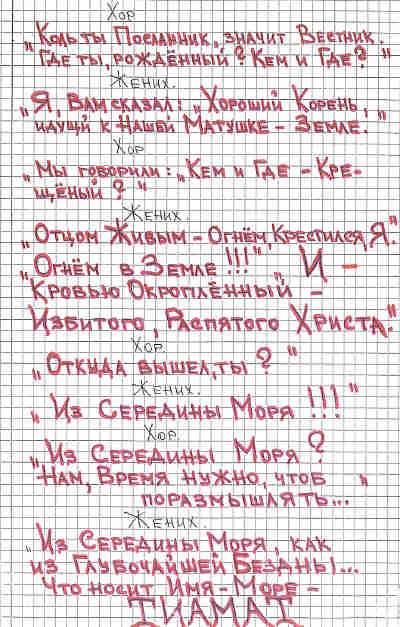 Хор
„Коль ты Посланник, значит Вестник.
Где ты, рождённый? Кем и Где?"
Жених.
„Я, Вам сказал: „Хороший Корень,
идущй к Нашей Матушке – Земле."
Хор
„Мы говорили: „Кем и Где – Кре-
щёный?"
Жених.
„Отцом Живым – Огнём, Крестился, Я."
„Огнём в Земле!!!" „И –
Кровью Окроплённый –
Избитого, Распятого Христа."
Хор.
„Откуда вышел, ты?"
Жених.
„Из Середины Моря!!!"
Хор.
„Из Середины Моря?
Нам, Время нужно, чтоб "
поразмышлять...
Жених.
„Из Середины Моря, как
из Глубочайшей Бездны...
Что носит Имя – Море –
ТИАМАТ